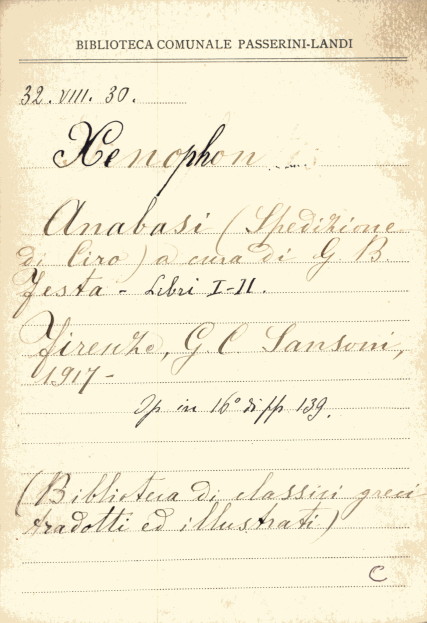 BIBLIOTECA COMUNALE PASSERINI-LANDI
32. VIII. 30.
Xenophon
Anabasi (Spedizione
di Ciro) a cura di G. B.
Festa - Libri I-II.
Firenze, G. C. Sansoni,
1917 -
Op in 16° di pp 139.
(Biblioteca di classici greci
tradotti ed illustrati)
C